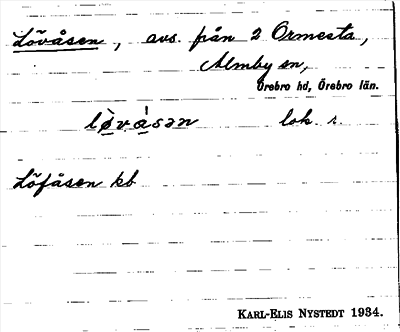 Lövåsen, avs. från 2 Ormesta,
Almby sn,
Örebro hd, Örebro län.
lø̀vá̀sən lok. r.
Löfåsen kb
KARL-ELIS NYSTEDT 1934.